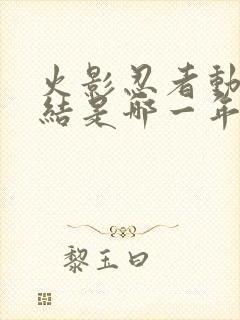 火影忍者動
結是哪一年
黎玉曰